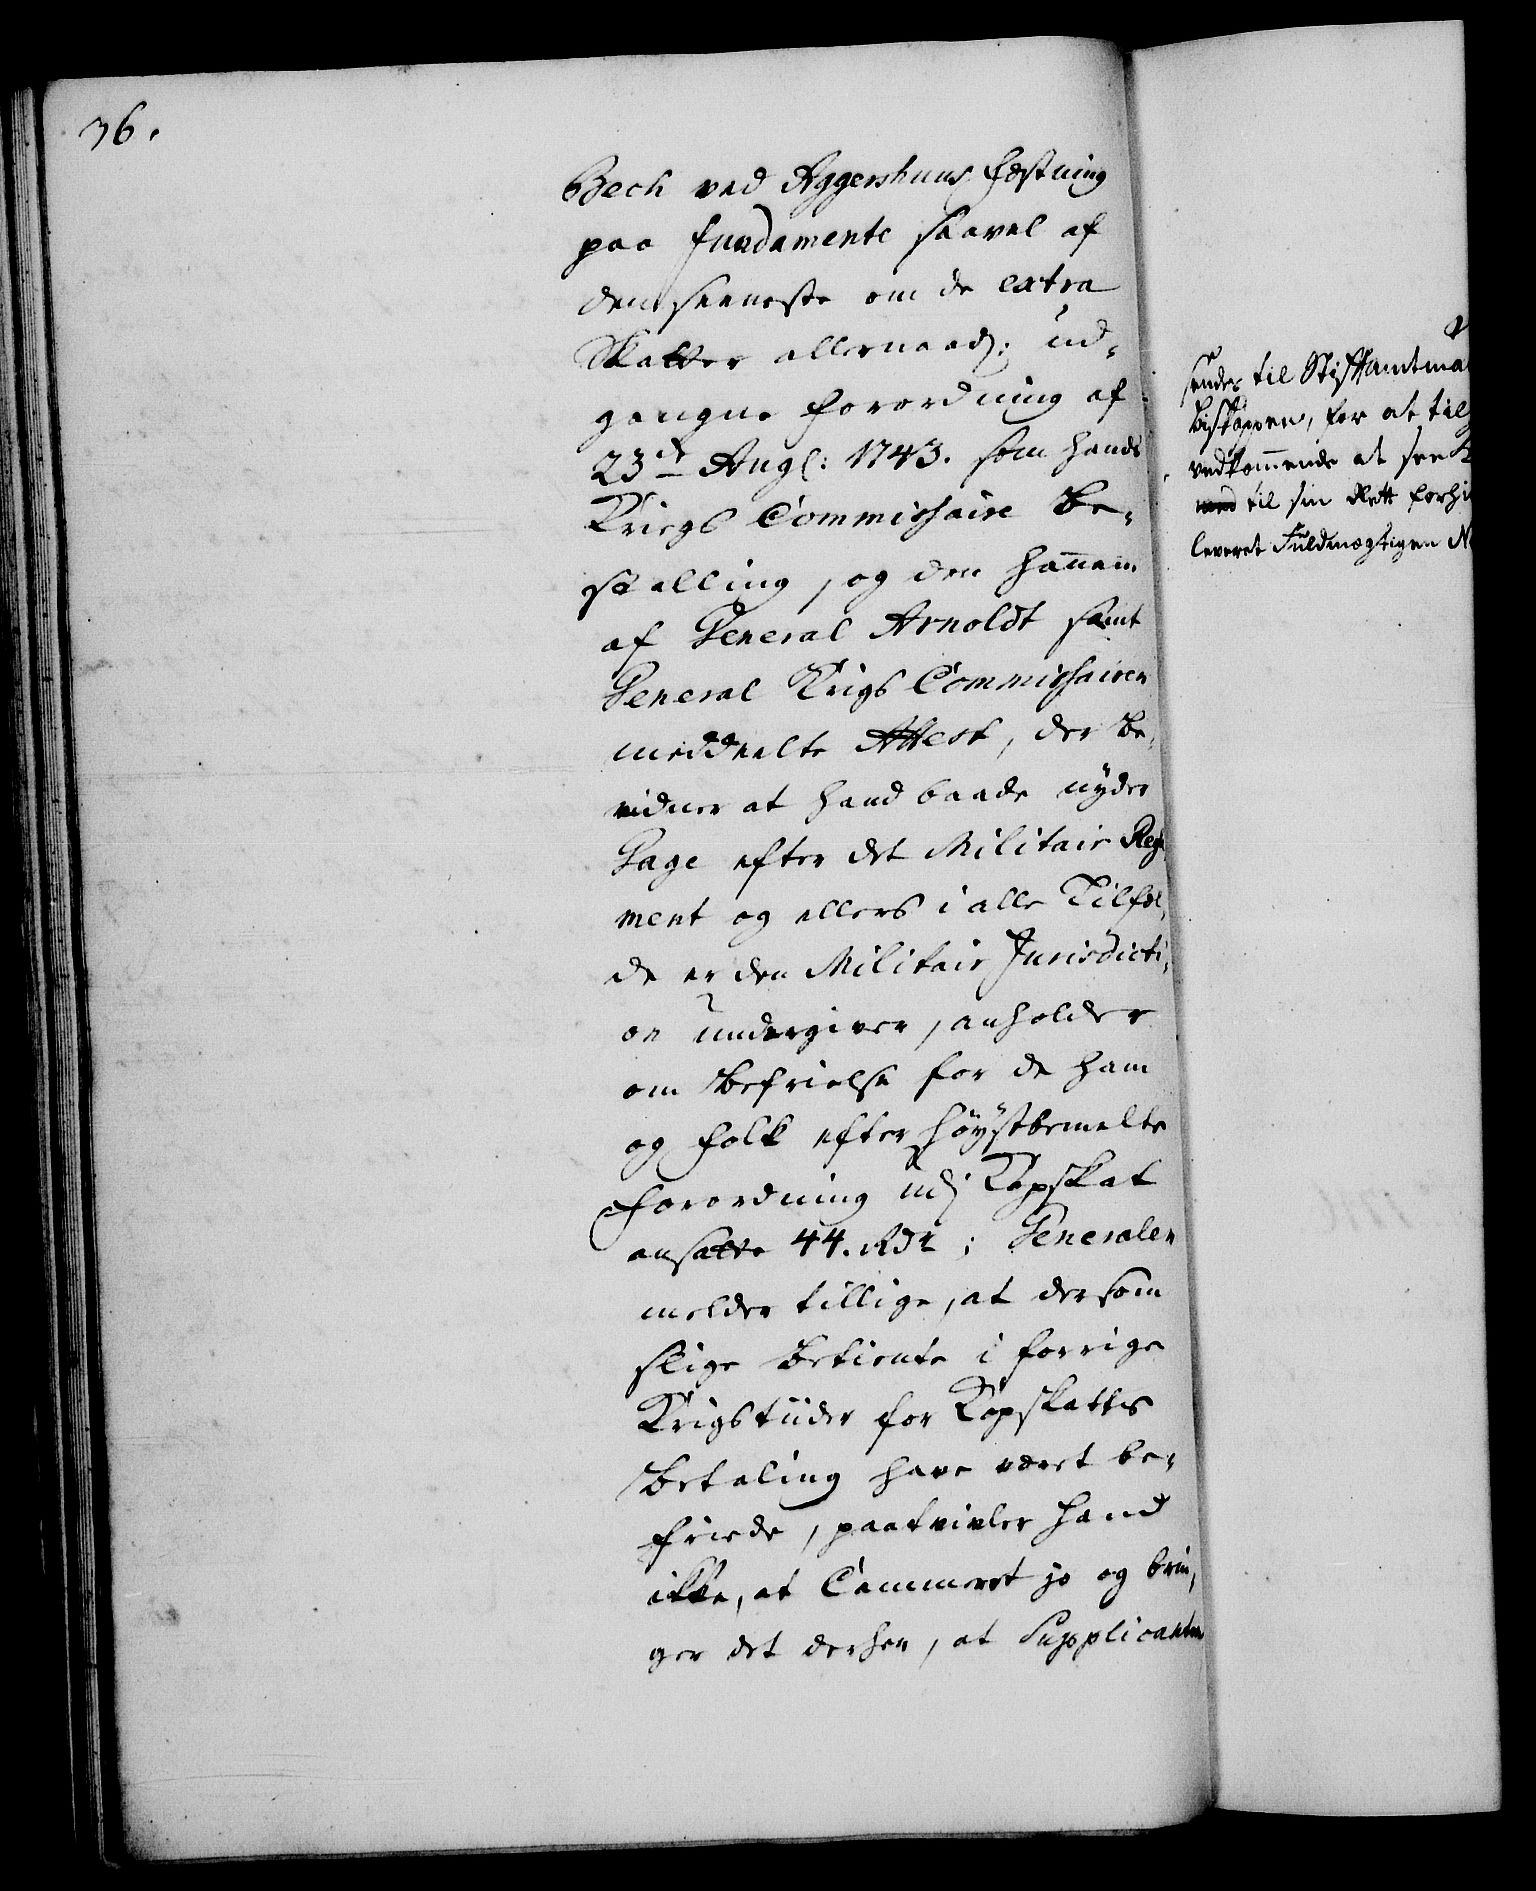 36.
Bech ved Aggershuus Fæstning
paa Fundamente saavel af
den seeneste om de extra
Skatter allernaad: ud-
gangne Forordning af
23de Aug: 1743. som hands
Kriegs Commissaire Be-
stalling, og den hannem
af General Arnoldt samt
General Krigs Commissairen
meddeelte Attest, der be-
vidner at hand baade nyder
Gage efter det Militair Regle-
ment og ellers i alle Tilfæl-
de er den Militair Jurisdicti-
on undergiven, anholder
om Befrielse for de ham
og Folk efter høystbemelte
Forordning udj Kopskat
ansatte 44. Rdr; Generalen
melder tillige, at dersom
slige Betiente i forrige
Krigstiider for Kopskattes
Betaling have været be-
friede, paatvivler hand
ikke, at Cammeret jo og brin-
ger det derhen, at Supplicanten
sendes til Stiftamtma
Biskoppen, for at til
vedkommende at see
til sin Rett forhi
leveret Fuldmægtigen